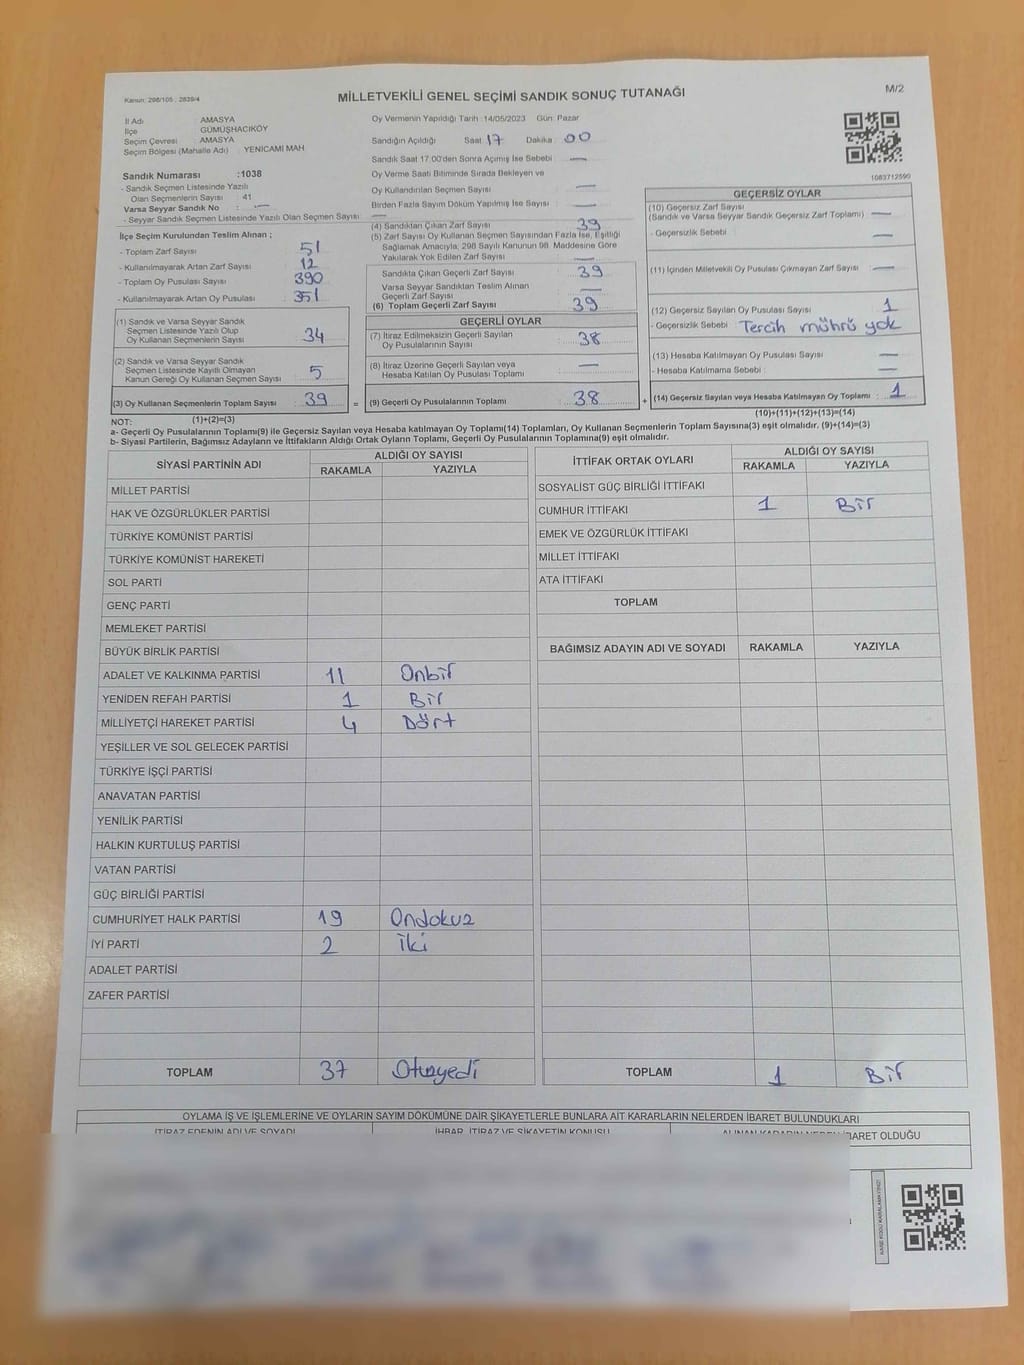 Kanun: 298/105 ; 2839/4
MİLLETVEKİLİ GENEL SEÇİMİ SANDIK SONUÇ TUTANAĞI
M/2
İl Adı AMASYA
İlçe GÜMÜŞHACIKÖY
Seçim Çevresi AMASYA
Seçim Bölgesi (Mahalle Adı) YENİCAMİ MAH
Sandık Numarası :1038
- Sandık Seçmen Listesinde Yazılı
Olan Seçmenlerin Sayısı : 41
Varsa Seyyar Sandık No : —
- Seyyar Sandık Seçmen Listesinde Yazılı Olan Seçmen Sayısı : —
İlçe Seçim Kurulundan Teslim Alınan ;
- Toplam Zarf Sayısı : 51
- Kullanılmayarak Artan Zarf Sayısı : 12
- Toplam Oy Pusulası Sayısı : 390
- Kullanılmayarak Artan Oy Pusulası : 351
(1) Sandık ve Varsa Seyyar Sandık
Seçmen Listesinde Yazılı Olup
Oy Kullanan Seçmenlerin Sayısı : 34
(2) Sandık ve Varsa Seyyar Sandık
Seçmen Listesinde Kayıtlı Olmayan
Kanun Gereği Oy Kullanan Seçmen Sayısı : 5
(3) Oy Kullanan Seçmenlerin Toplam Sayısı : 39 =
Oy Vermenin Yapıldığı Tarih :14/05/2023 Gün :Pazar
Sandığın Açıldığı Saat :17 Dakika :00
Sandık Saat 17:00'den Sonra Açımış İse Sebebi : —
Oy Verme Saati Bitiminde Sırada Bekleyen ve
Oy Kullandırılan Seçmen Sayısı : —
Birden Fazla Sayım Döküm Yapılmış İse Sayısı : —
(4) Sandıktan Çıkan Zarf Sayısı : 39
(5) Zarf Sayısı Oy Kullanan Seçmen Sayısından Fazla İse, Eşitliği
Sağlamak Amacıyla; 298 Sayılı Kanunun 98. Maddesine Göre
Yakılarak Yok Edilen Zarf Sayısı : —
Sandıkta Çıkan Geçerli Zarf Sayısı : 39
Varsa Seyyar Sandıktan Teslim Alınan
Geçerli Zarf Sayısı : —
(6) Toplam Geçerli Zarf Sayısı : 39
GEÇERLİ OYLAR
(7) İtiraz Edilmeksizin Geçerli Sayılan
Oy Pusulalarının Sayısı : 38
(8) İtiraz Üzerine Geçerli Sayılan veya
Hesaba Katılan Oy Pusulası Toplamı : —
(9) Geçerli Oy Pusulalarının Toplamı : 38 +
1083712590
GEÇERSİZ OYLAR
(10) Geçersiz Zarf Sayısı
(Sandık ve Varsa Seyyar Sandık Geçersiz Zarf Toplamı) : —
- Geçersizlik Sebebi : —
(11) İçinden Milletvekili Oy Pusulası Çıkmayan Zarf Sayısı : —
(12) Geçersiz Sayılan Oy Pusulası Sayısı : 1
- Geçersizlik Sebebi : Tercih mührü yok
(13) Hesaba Katılmayan Oy Pusulası Sayısı : —
- Hesaba Katılmama Sebebi : —
(14) Geçersiz Sayılan veya Hesaba Katılmayan Oy Toplamı : 1
(10)+(11)+(12)+(13)=(14)
NOT: (1)+(2)=(3)
a- Geçerli Oy Pusulalarının Toplamı(9) ile Geçersiz Sayılan veya Hesaba katılmayan Oy Toplamı(14) Toplamları, Oy Kullanan Seçmenlerin Toplam Sayısına(3) eşit olmalıdır. (9)+(14)=(3)
b- Siyasi Partilerin, Bağımsız Adayların ve İttifakların Aldığı Ortak Oyların Toplamı, Geçerli Oy Pusulalarının Toplamına(9) eşit olmalıdır.
SİYASİ PARTİNİN ADI ALDIĞI OY SAYISI
RAKAMLA YAZIYLA
MİLLET PARTİSİ
HAK VE ÖZGÜRLÜKLER PARTİSİ
TÜRKİYE KOMÜNİST PARTİSİ
TÜRKİYE KOMÜNİST HAREKETİ
SOL PARTİ
GENÇ PARTİ
MEMLEKET PARTİSİ
BÜYÜK BİRLİK PARTİSİ
ADALET VE KALKINMA PARTİSİ 11 Onbir
YENİDEN REFAH PARTİSİ 1 Bir
MİLLİYETÇİ HAREKET PARTİSİ 4 Dört
YEŞİLLER VE SOL GELECEK PARTİSİ
TÜRKİYE İŞÇİ PARTİSİ
ANAVATAN PARTİSİ
YENİLİK PARTİSİ
HALKIN KURTULUŞ PARTİSİ
VATAN PARTİSİ
GÜÇ BİRLİĞİ PARTİSİ
CUMHURİYET HALK PARTİSİ 19 Ondokuz
İYİ PARTİ 2 İki
ADALET PARTİSİ
ZAFER PARTİSİ
TOPLAM 37 Otuzyedi
İTTİFAK ORTAK OYLARI ALDIĞI OY SAYISI
RAKAMLA YAZIYLA
SOSYALİST GÜÇ BİRLİĞİ İTTİFAKI
CUMHUR İTTİFAKI 1 Bir
EMEK VE ÖZGÜRLÜK İTTİFAKI
MİLLET İTTİFAKI
ATA İTTİFAKI
TOPLAM
BAĞIMSIZ ADAYIN ADI VE SOYADI RAKAMLA YAZIYLA
TOPLAM 1 Bir
OYLAMA İŞ VE İŞLEMLERİNE VE OYLARIN SAYIM DÖKÜMÜNE DAİR ŞİKAYETLERLE BUNLARA AİT KARARLARIN NELERDEN İBARET BULUNDUKLARI
İTİRAZ EDENİN ADI VE SOYADI İHBAR, İTİRAZ VE ŞİKAYETİN KONUSU ALINAN KARARIN NEDEN İBARET OLDUĞU
KARE KODU KARALAMAYINIZ!